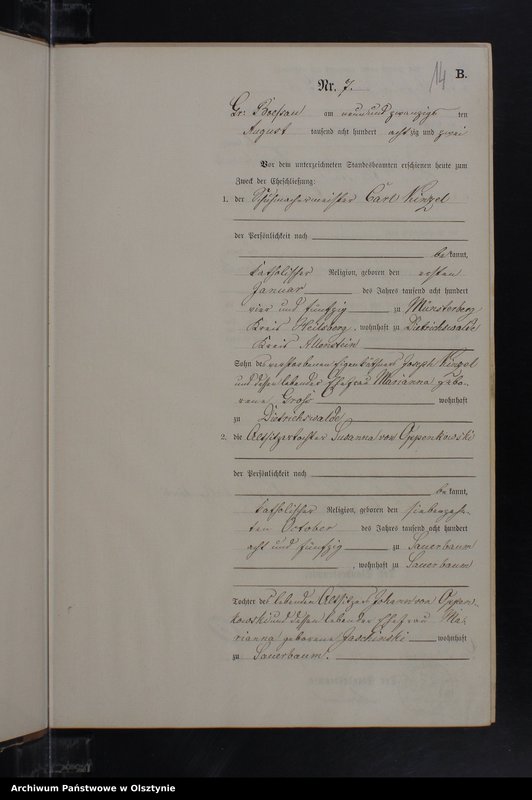 14
B.
Nr. 7.
Gr. Boessau am neun und zwanzigs ten
August tausend acht hundert acht zig und zwei
Vor dem unterzeichneten Standesbeamten erschienen heute zum
Zweck der Eheschließung:
1. der Schuhmachermeister Carl Kinzel
der Persönlichkeit nach
be kannt,
katholischer Religion, geboren den ersten
Januar des Jahres tausend acht hundert
vier und fünfzig zu Münsterberg
Kreis Heilsberg, wohnhaft zu Dietrichswalde
Kreis Allenstein
Sohn des verstorbenen Eigenkäthners Joseph Kinzel
und dessen lebender Ehefrau Marianna gebo-
rene Groß wohnhaft
zu Dietrichswalde
2. die Altsitzertochter Susanna von Oppenkowski
der Persönlichkeit nach
be kannt,
katholischer Religion, geboren den siebenzehn-
ten October des Jahres tausend acht hundert
acht und fünfzig zu Sauerbaum
, wohnhaft zu Sauerbaum
Tochter des lebenden Altsitzers Johann von Oppen-
kowski und dessen lebender Ehefrau Ma-
rianna geborene Jaschinski wohnhaft
zu Sauerbaum.
Archiwum Państwowe w Olsztynie